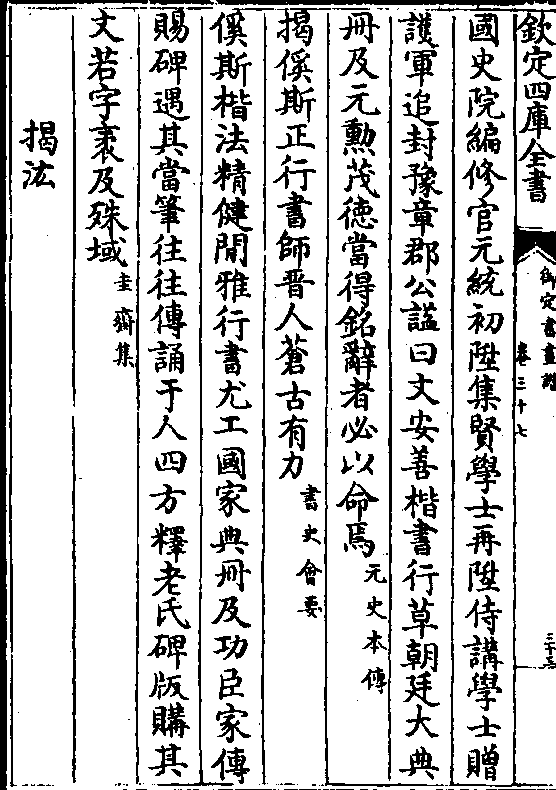 欽定四庫全書
御定書畫譜
卷三十七
三十三
國史院編修官元統初陞集賢學士再陞侍講學士贈
護軍追封豫章郡公諡曰文安善楷書行草朝廷大典
冊及元勲茂徳當得銘辭者必以命焉元史本傳
揭傒斯正行書師晋人蒼古有力書史會要
傒斯楷法精健閒雅行書尤工國家典冊及功臣家傳
賜碑遇其當筆往往傳誦于人四方釋老氏碑版購其
文若字袤及殊域圭齋集
揭汯